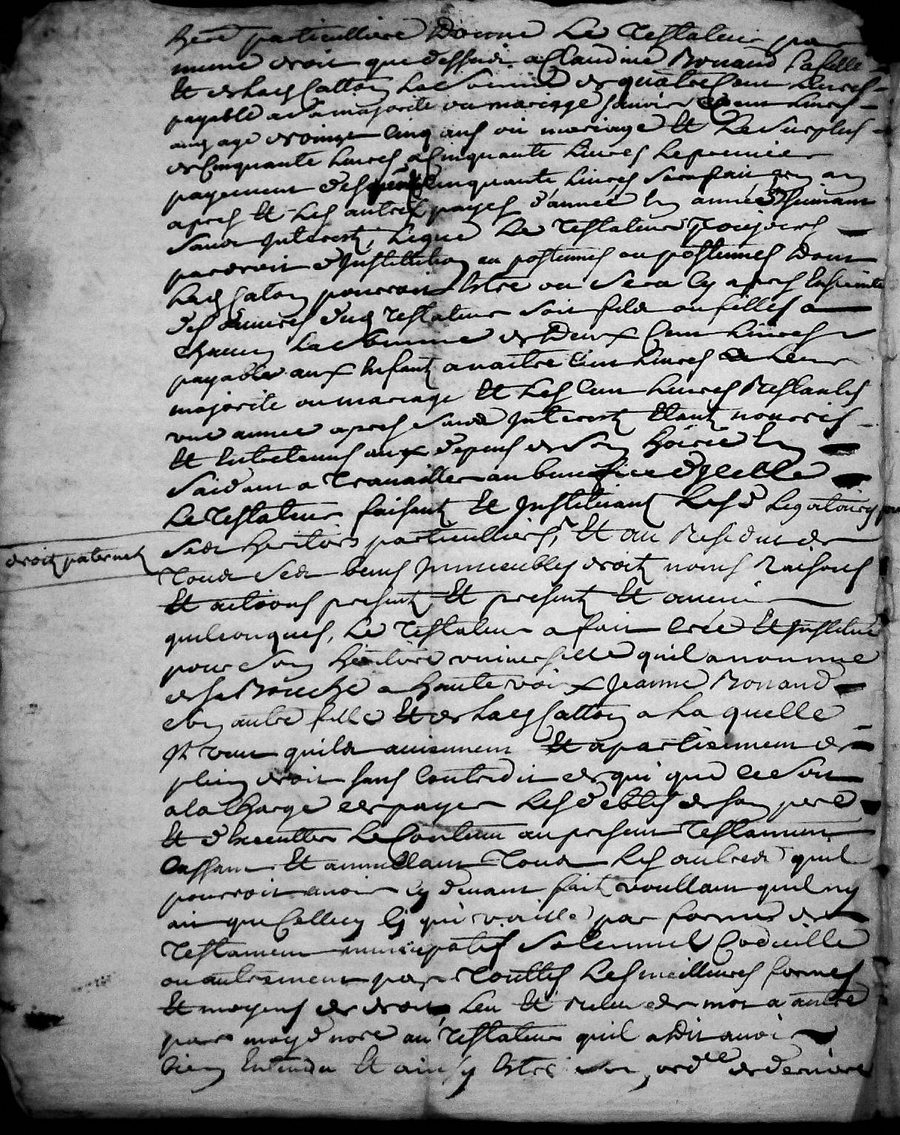 here particulliere Donne Le Testateur par
meme droit que dessus a Claudine Bonaud sa fille
Et de Lad Catton La Somme de quatre Cent Livres
payable a sa majorite ou mariage Cent Livres
aud age de vingt Cinq ans ou mariage Et Le Surplus
de Cinquante Livres a Cinquante Livres Le premier
payement des Cinquante Livres Sera fait un an
apres Et Les autres payes d'année En année Suivant
Sans Interest, Legue Le Testateur Toujours
par droit d'Institution au postumes ou postumes Dont
Lad Caton pourroit Estre ou Sera Cy apres Enseinte
des Euvres dud Testateur Soit fils ou filles a
Chacun La Somme de Deux Cent Livres
payable aux Enfant a naitre Cent Livres a Leur
majorite ou mariage Et Les Cent Livres Restantes
une annee apres Sans Interest Etant nourris
Et Entretenus aux depens de Son Hoirie En
Saidant a Travailler au beneffice d'Icelle
Le Testateur faisant Et Instituant Lesd Legataires
Ses heritiers particulliers, Et au Residu de
droit paternel
Tous Ses biens Immeubles droit noms Raisons
Et actions present Et present Et avenir
quelconques, Le Testateur a fait Crée Et Institué
pour Son heritiere universelle qu'il a nommé
de sa Bouche a haute voix Jeanne Bonaud
Son autre fille Et de Lad Catton a La quelle
Il veut quils aviennent Et apartiennent de
plein droit sans Contredit de qui que ce Soit
a la Charge de payer Les debtes de Son pere
Et d'Executter Le Contenu au present Testament
Cassant Et annullant Tous Les autres quil
pourroit avoir Cy devant fait voullant quil ny
ait que Celluy Cy qui vaille par forme de
Testament nuncupatif Solennel Codicille
ou autrement par Touttes Les meilleures formes
Et moyens de droit, Leu Et releu de mot a autre
par moy d nore au Testateur quil a dit avoir
bien Entendu Et ainsy Estre Son, ord.lle de derniere